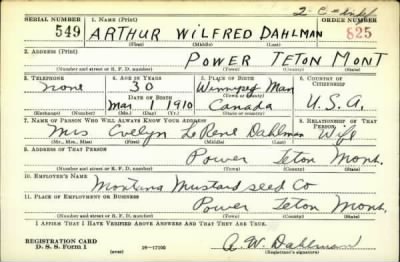 2-C-
SERIAL NUMBER 1. NAME (Print) ORDER NUMBER
549 ARTHUR WILFRED DAHLMAN 825
(First) (Middle) (Last)
2. ADDRESS (Print)
POWER TETON MONT
(Number and street or R. F. D. number) (Town) (County) (State)
3. TELEPHONE 4. AGE IN YEARS 5. PLACE OF BIRTH 6. COUNTRY OF CITIZENSHIP
none 30 Winnipeg Man
DATE OF BIRTH (Town or county)
Mar 1 1910 Canada U.S.A.
(Exchange) (Number) (Mo.) (Day) (Yr.) (State or country)
7. NAME OF PERSON WHO WILL ALWAYS KNOW YOUR ADDRESS 8. RELATIONSHIP OF THAT PERSON
Mrs Evelyn LeRene Dahlman Wife
(Mr., Mrs., Miss) (First) (Middle) (Last)
9. ADDRESS OF THAT PERSON
Power Teton Mont.
(Number and street or R. F. D. number) (Town) (County) (State)
10. EMPLOYER'S NAME
Montana Mustard seed Co
11. PLACE OF EMPLOYMENT OR BUSINESS
Power Teton Mont.
(Number and street or R. F. D. number) (Town) (County) (State)
I AFFIRM THAT I HAVE VERIFIED ABOVE ANSWERS AND THAT THEY ARE TRUE.
REGISTRATION CARD
D. S. S. Form 1 (over) 16-17105 A. W. Dahlman
(Registrant's signature)